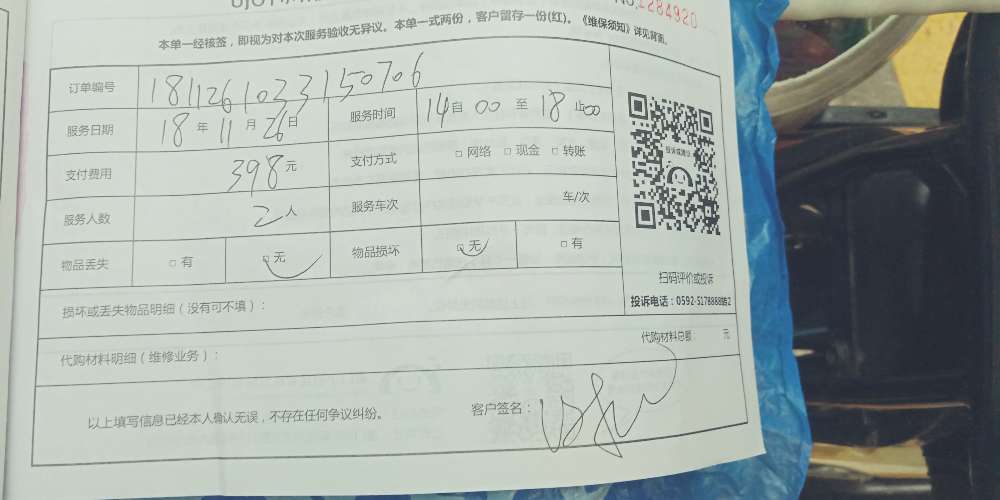 1284920
本单一经核签，即视为对本次服务验收无异议。本单一式两份，客户留存一份(红)。《维保须知》详见背面。
订单编号 1811261033150706
服务日期 18年11月26日 服务时间 14自00至18止00
支付费用 398元 支付方式 □网络 □现金 □转账
服务人数 2人 服务车次 车/次
物品丢失 □有 □无 物品损坏 □无 □有
投诉或建议
扫码评价或投诉
投诉电话：0592-5178888转2
损坏或丢失物品明细（没有可不填）：
代购材料明细（维修业务）： 代购材料总额： 元
以上填写信息已经本人确认无误，不存在任何争议纠纷。 客户签名：